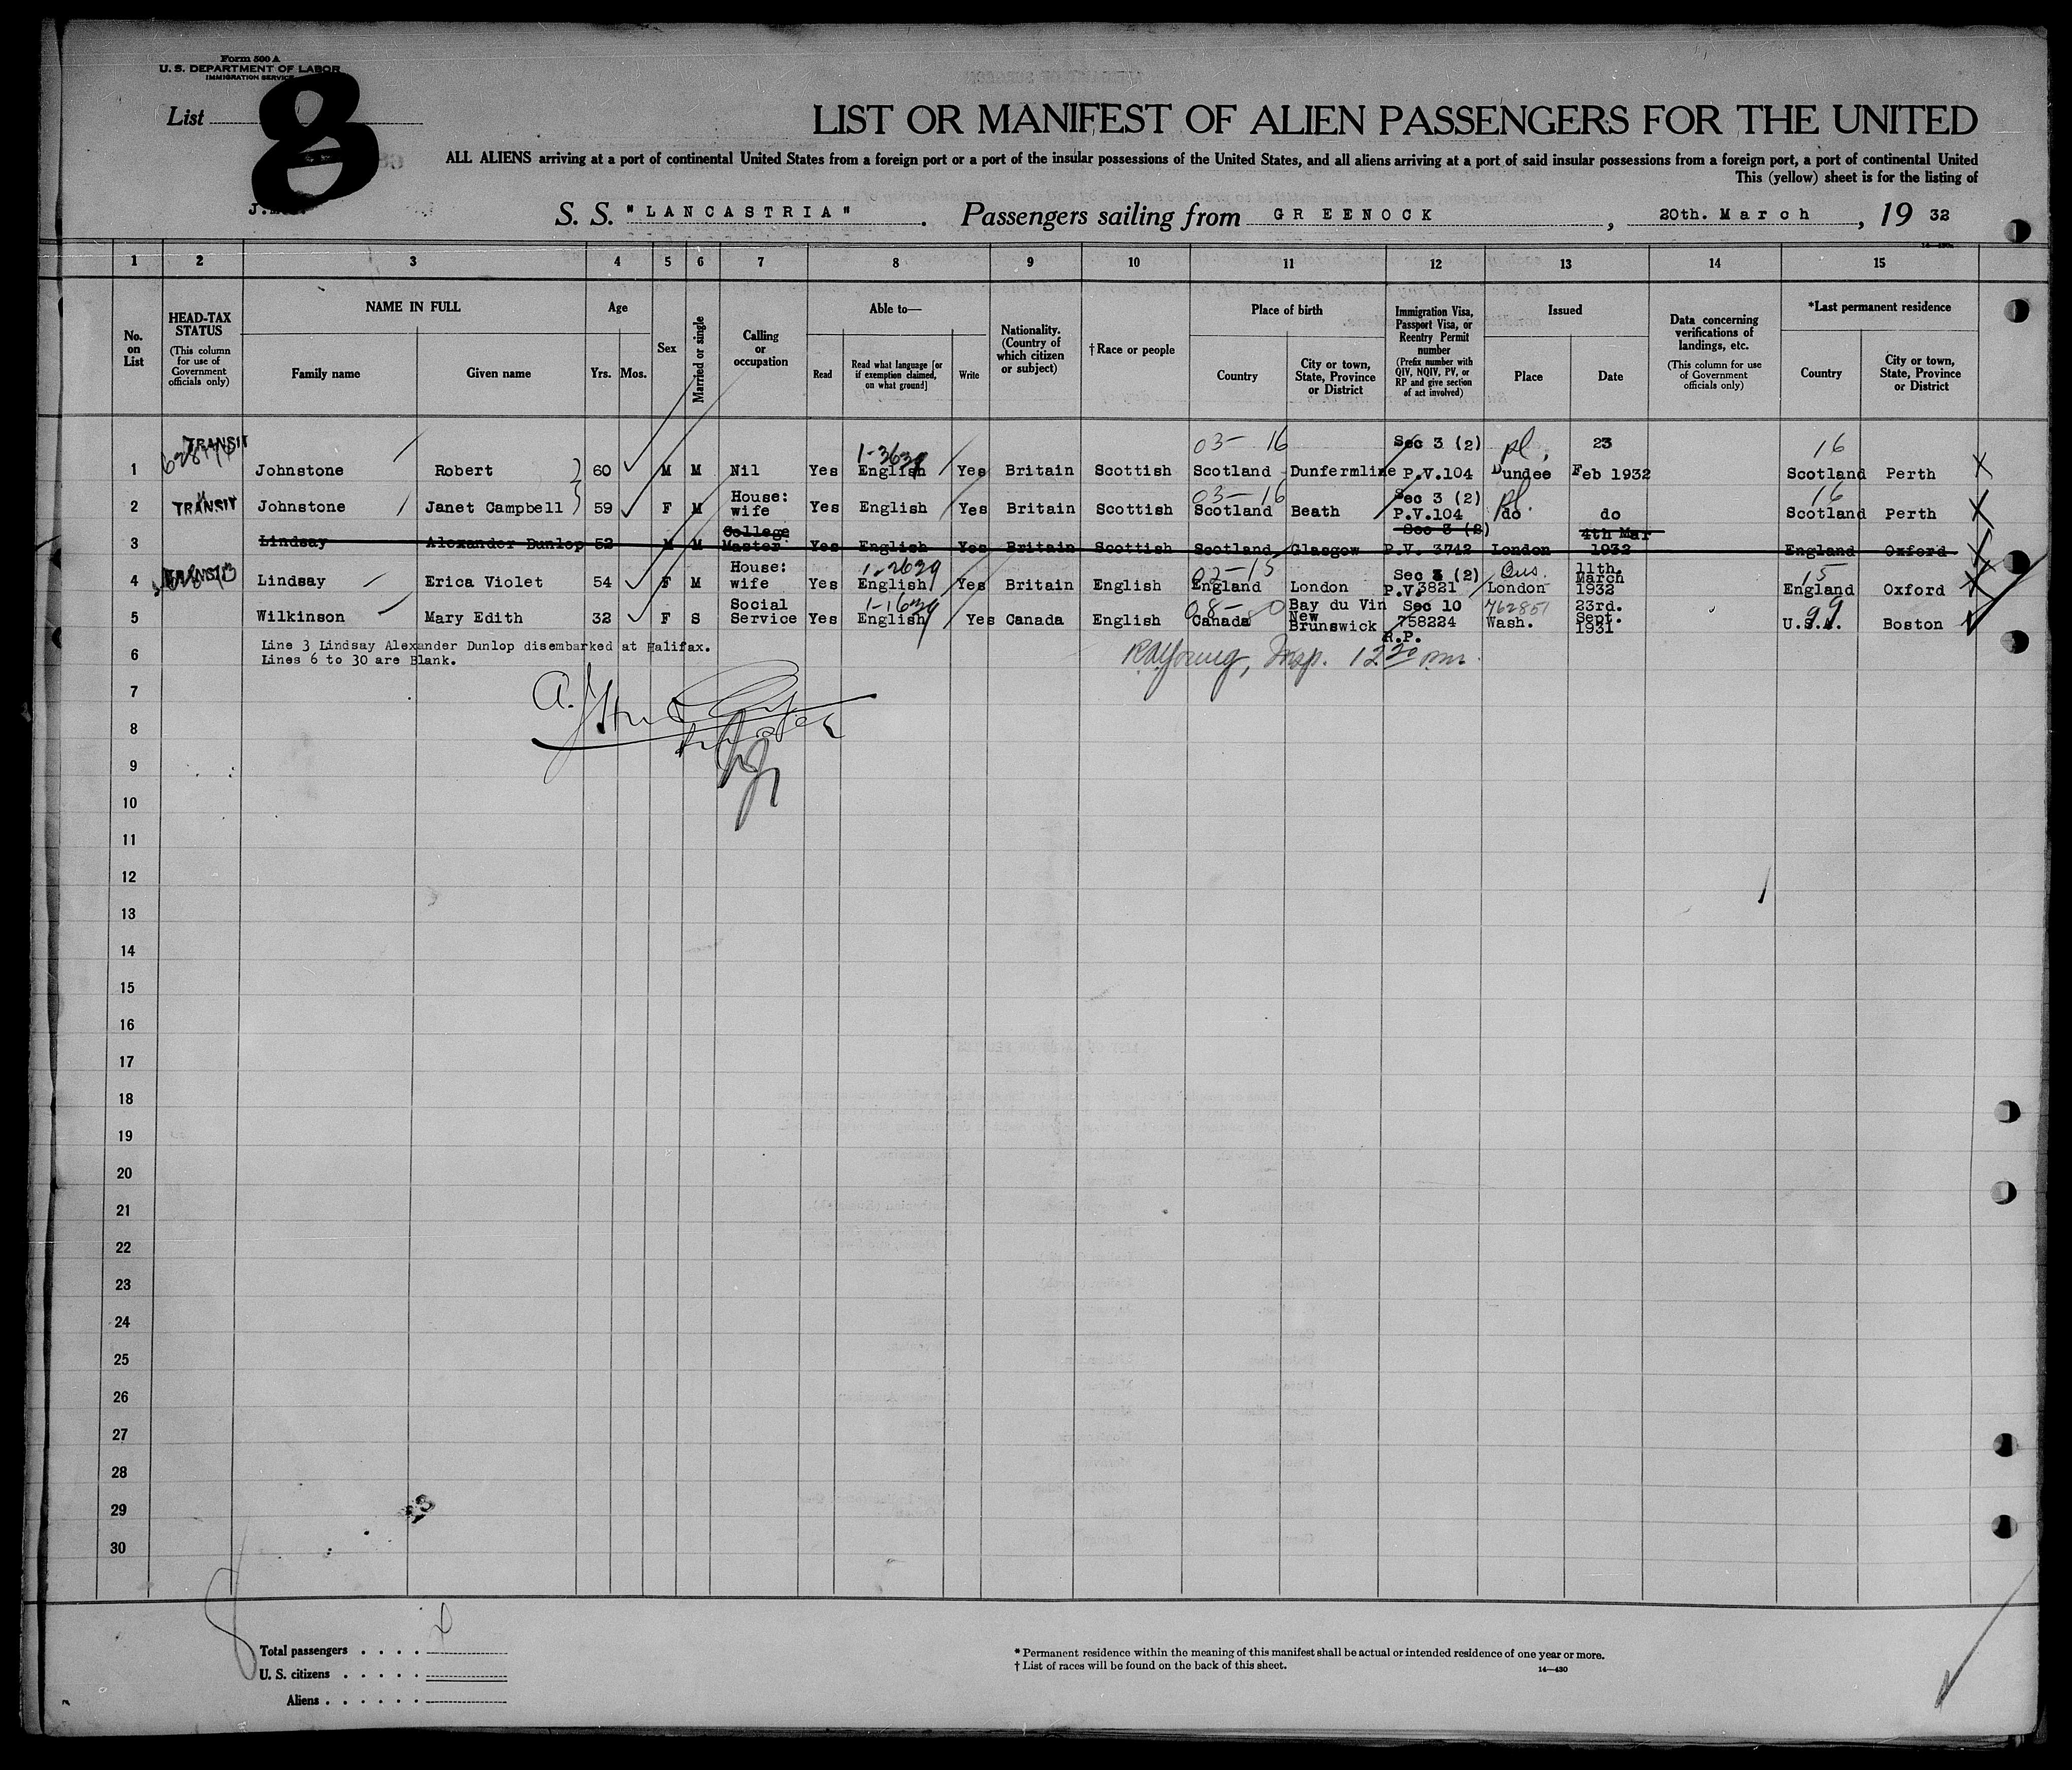 Form 500 A
U. S. DEPARTMENT OF LABOR
IMMIGRATION SERVICE
List 8
LIST OR MANIFEST OF ALIEN PASSENGERS FOR THE UNITED
ALL ALIENS arriving at a port of continental United States from a foreign port or a port of the insular possessions of the United States, and all aliens arriving at a port of said insular possessions from a foreign port, a port of continental United
This (yellow) sheet is for the listing of
S. S. "LANCASTRIA". Passengers sailing from GREENOCK, 20th. March, 19 32
1 2 3 4 5 6 7 8 9 10 11 12 13 14 15
No. on List
HEAD-TAX STATUS
(This column for use of Government officials only)
NAME IN FULL
Family name
Given name
Age
Yrs. Mos.
Sex
Married or single
Calling or occupation
Able to—
Read
Read what language [or if exemption claimed, on what ground]
Write
Nationality. (Country of which citizen or subject)
†Race or people
Place of birth
Country
City or town, State, Province or District
Immigration Visa, Passport Visa, or Reentry Permit number
(Prefix number with QIV, NQIV, PV, or RP and give section of act involved)
Issued
Place
Date
Data concerning verifications of landings, etc.
(This column for use of Government officials only)
*Last permanent residence
Country
City or town, State, Province or District
TRANSIT 03- 16 Sec 3 (2) pl. 23 16
1 Johnstone Robert 60 M M Nil Yes English Yes Britain Scottish Scotland Dunfermline P.V.104 Dundee Feb 1932 Scotland Perth
03- 16 Sec 3 (2) pl. 16
2 TRANSIT Johnstone Janet Campbell 59 F M House: wife Yes English Yes Britain Scottish Scotland Beath P.V.104 do do Scotland Perth
3 Lindsay Alexander Dunlop 52 M M College Master Yes English Yes Britain Scottish Scotland Glasgow Sec 3 (2) P.V. 3742 London 4th Mar 1932 England Oxford
1-2639 02-15 15
4 TRANSIT Lindsay Erica Violet 54 F M House: wife Yes English Yes Britain English England London Sec 3 (2) P.V.3821 London 11th. March 1932 England Oxford
1-1639 08- 0 762851 99
5 Wilkinson Mary Edith 32 F S Social Service Yes English Yes Canada English Canada Bay du Vin New Brunswick Sec 10 758224 R.P. Wash. 23rd. Sept. 1931 U.S.A. Boston
Line 3 Lindsay Alexander Dunlop disembarked at Halifax.
6 Lines 6 to 30 are Blank.
Insp. 12 20 pm.
7
8
9
10
11
12
13
14
15
16
17
18
19
20
21
22
23
24
25
26
27
28
29
30
Total passengers
U. S. citizens
Aliens
* Permanent residence within the meaning of this manifest shall be actual or intended residence of one year or more.
† List of races will be found on the back of this sheet.
14—430